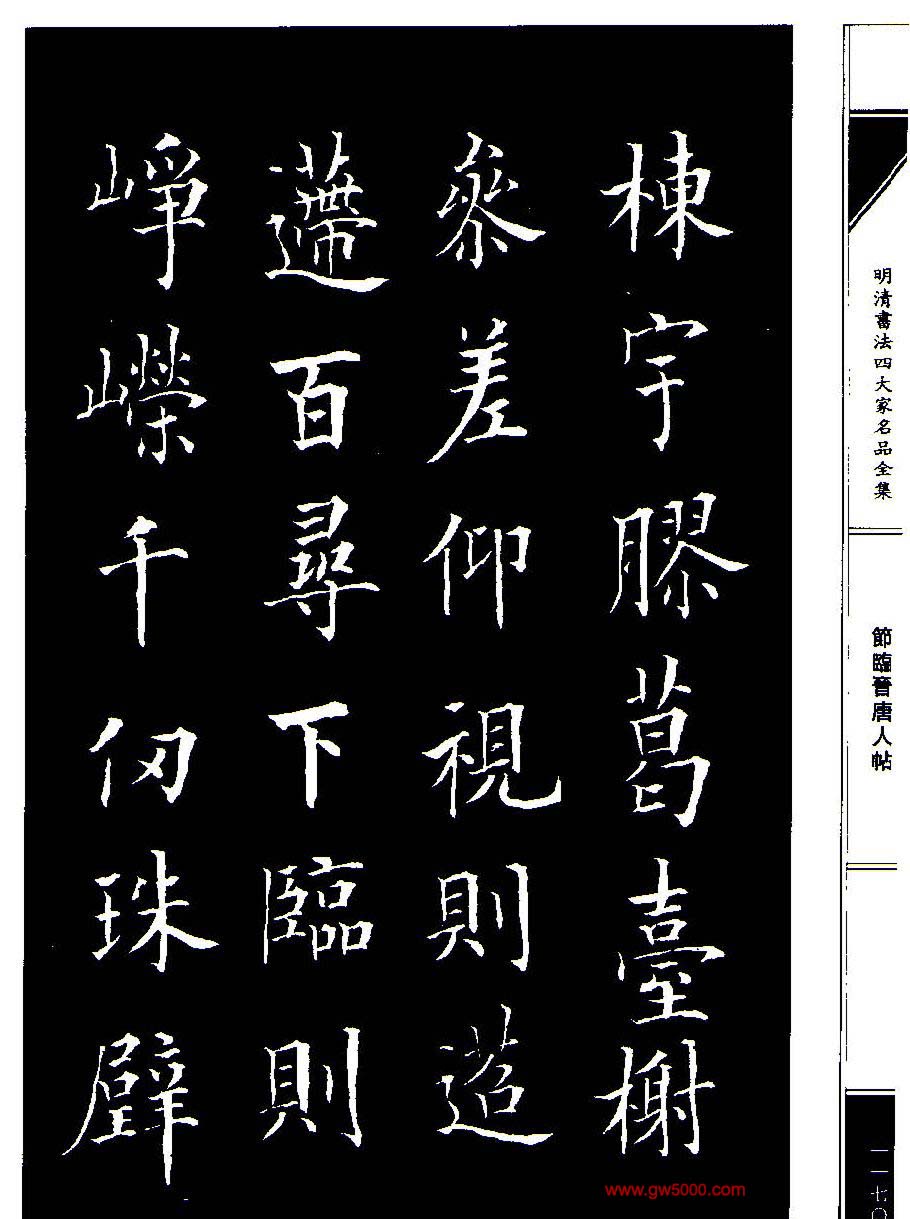 明清書法四大家名品全集
節臨晉唐人帖
一一七〇
棟宇膠葛臺榭
參差仰視則迢
遰百尋下臨則
崢嶸千仞珠璧
www.gw5000.com